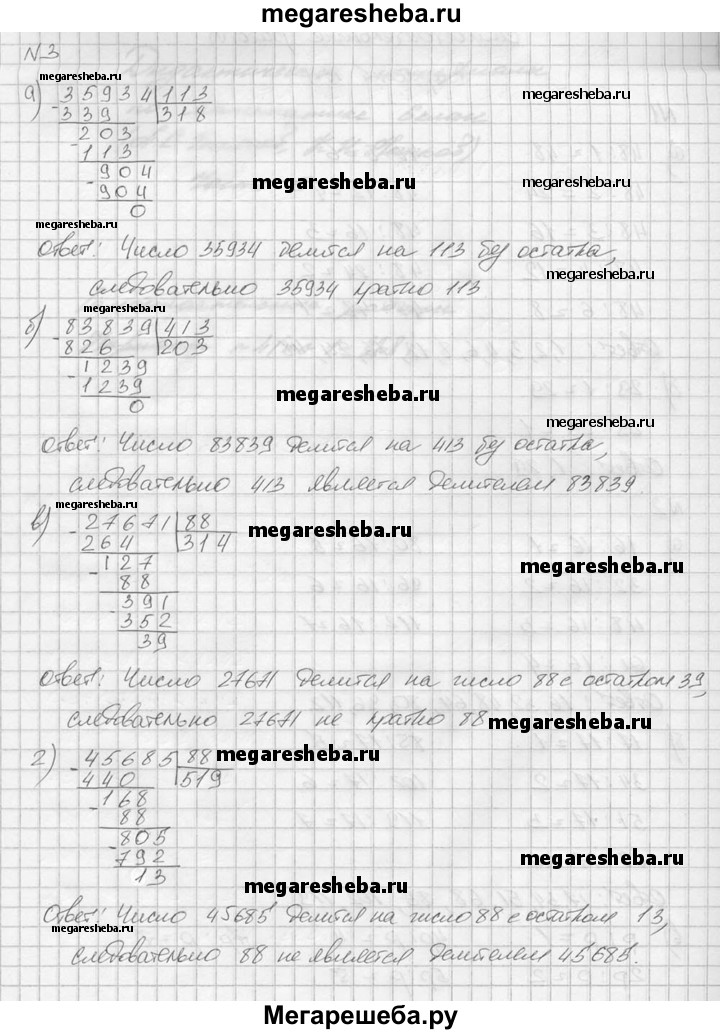 megaresheba.ru
N3
megaresheba.ru
а) 35934 113 megaresheba.ru
- 339 318
203
- 113
904
- 904 megaresheba.ru
0
megaresheba.ru
ответ: Число 35934 делится на 113 без остатка,
megaresheba.ru
следовательно 35934 кратно 113
megaresheba.ru
б) 83839 413
- 826 203
1239
- 1239
0 megaresheba.ru
megaresheba.ru
ответ: Число 83839 делится на 413 без остатка,
следовательно 413 является делителем 83839.
в) 27671 88 megaresheba.ru
- 264 314
127
- 88 megaresheba.ru
391
- 352
39
ответ: Число 27671 делится на число 88 с остатком 39,
следовательно 27671 не кратно 88 megaresheba.ru
г) 45685 88 megaresheba.ru
- 440 519
168
- 88
805
- 792 megaresheba.ru
13
megaresheba.ru
Ответ: Число 45685 делится на число 88 с остатком 13,
megaresheba.ru
следовательно 88 не является делителем 45685.
megaresheba.ru
Мегарешеба.ру